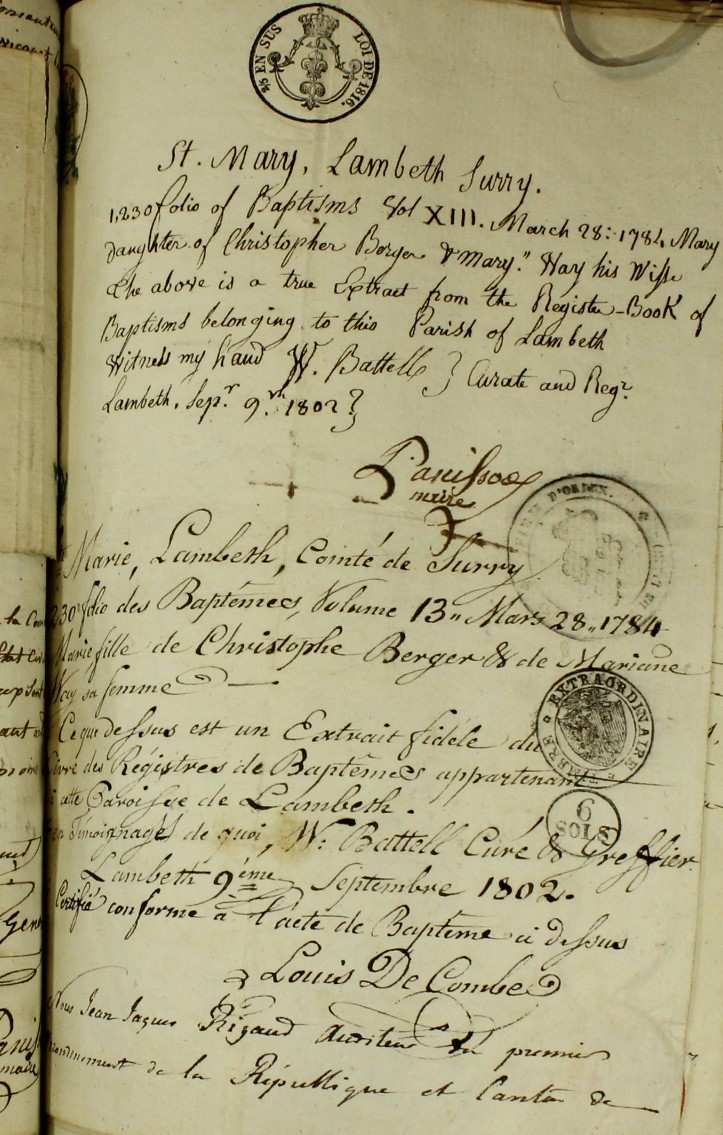 EN SUS LOI DE 1816.
St. Mary, Lambeth Surry.
1,230 folio of Baptisms Vol XIII. March 28: 1784 Mary
daughter of Christopher Berger & Mary" Way his Wife
The above is a true Extract from the Register-Book of
Baptisms belonging to this Parish of Lambeth
Witness my hand W. Battell } Curate and Regr.
Lambeth, Sepr. 9.th 1802 }
maire
Marie, Lambeth, Comté de Surry
230 folio des Baptêmes, Volume 13" Mars 28" 1784
Marie fille de Christophe Berger & de Mariane
Way sa femme
Ce que dessus est un Extrait fidéle du
Livre des Régistres de Baptêmes appartenant
à cette Paroisse de Lambeth.
en Témoignage de quoi, W. Battell Curé & Greffier
Lambeth 9ème Septembre 1802.
Certifié conforme à l'acte de Baptême ci dessus
Louis De Combe
Nous Jean Jaques Rigaud Auditeur du premier
de la République et Canton de
D'ORNEX.
TIMBRE EXTRAORDINAIRE
6 SOLS